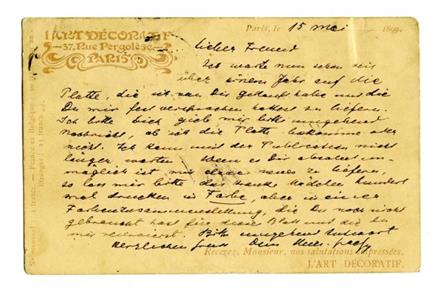 L'ART DÉCORATIF
37, Rue Pergolèse
PARIS
Paris, le 15 Mai 189
Lieber Freund
Ich warte nun schon seit
über einem Jahr auf die
Platte, die ich von Dir gekauft habe und die
Du mir fest versprochen hattest zu liefern.
Ich bitte Dich gieb mir bitte umgehend
Nachricht, ob ich die Platte bekomme oder
nicht. Ich kann mit der Publication nicht
länger warten. Wenn es Dir absolut un-
möglich ist mir eine neue zu liefern,
so lass mir bitte das Mädchen hundert
mal drucken in Farbe, aber in einer
Farbenzusammenstellung, die Du noch nicht
gebraucht hast für dieses Blatt und die Du
mir reservierst. Bitte umgehend Antwort
Herzlichen Gruss Dein
Recevez, Monsieur, nos salutations empressées.
L'ART DÉCORATIF.